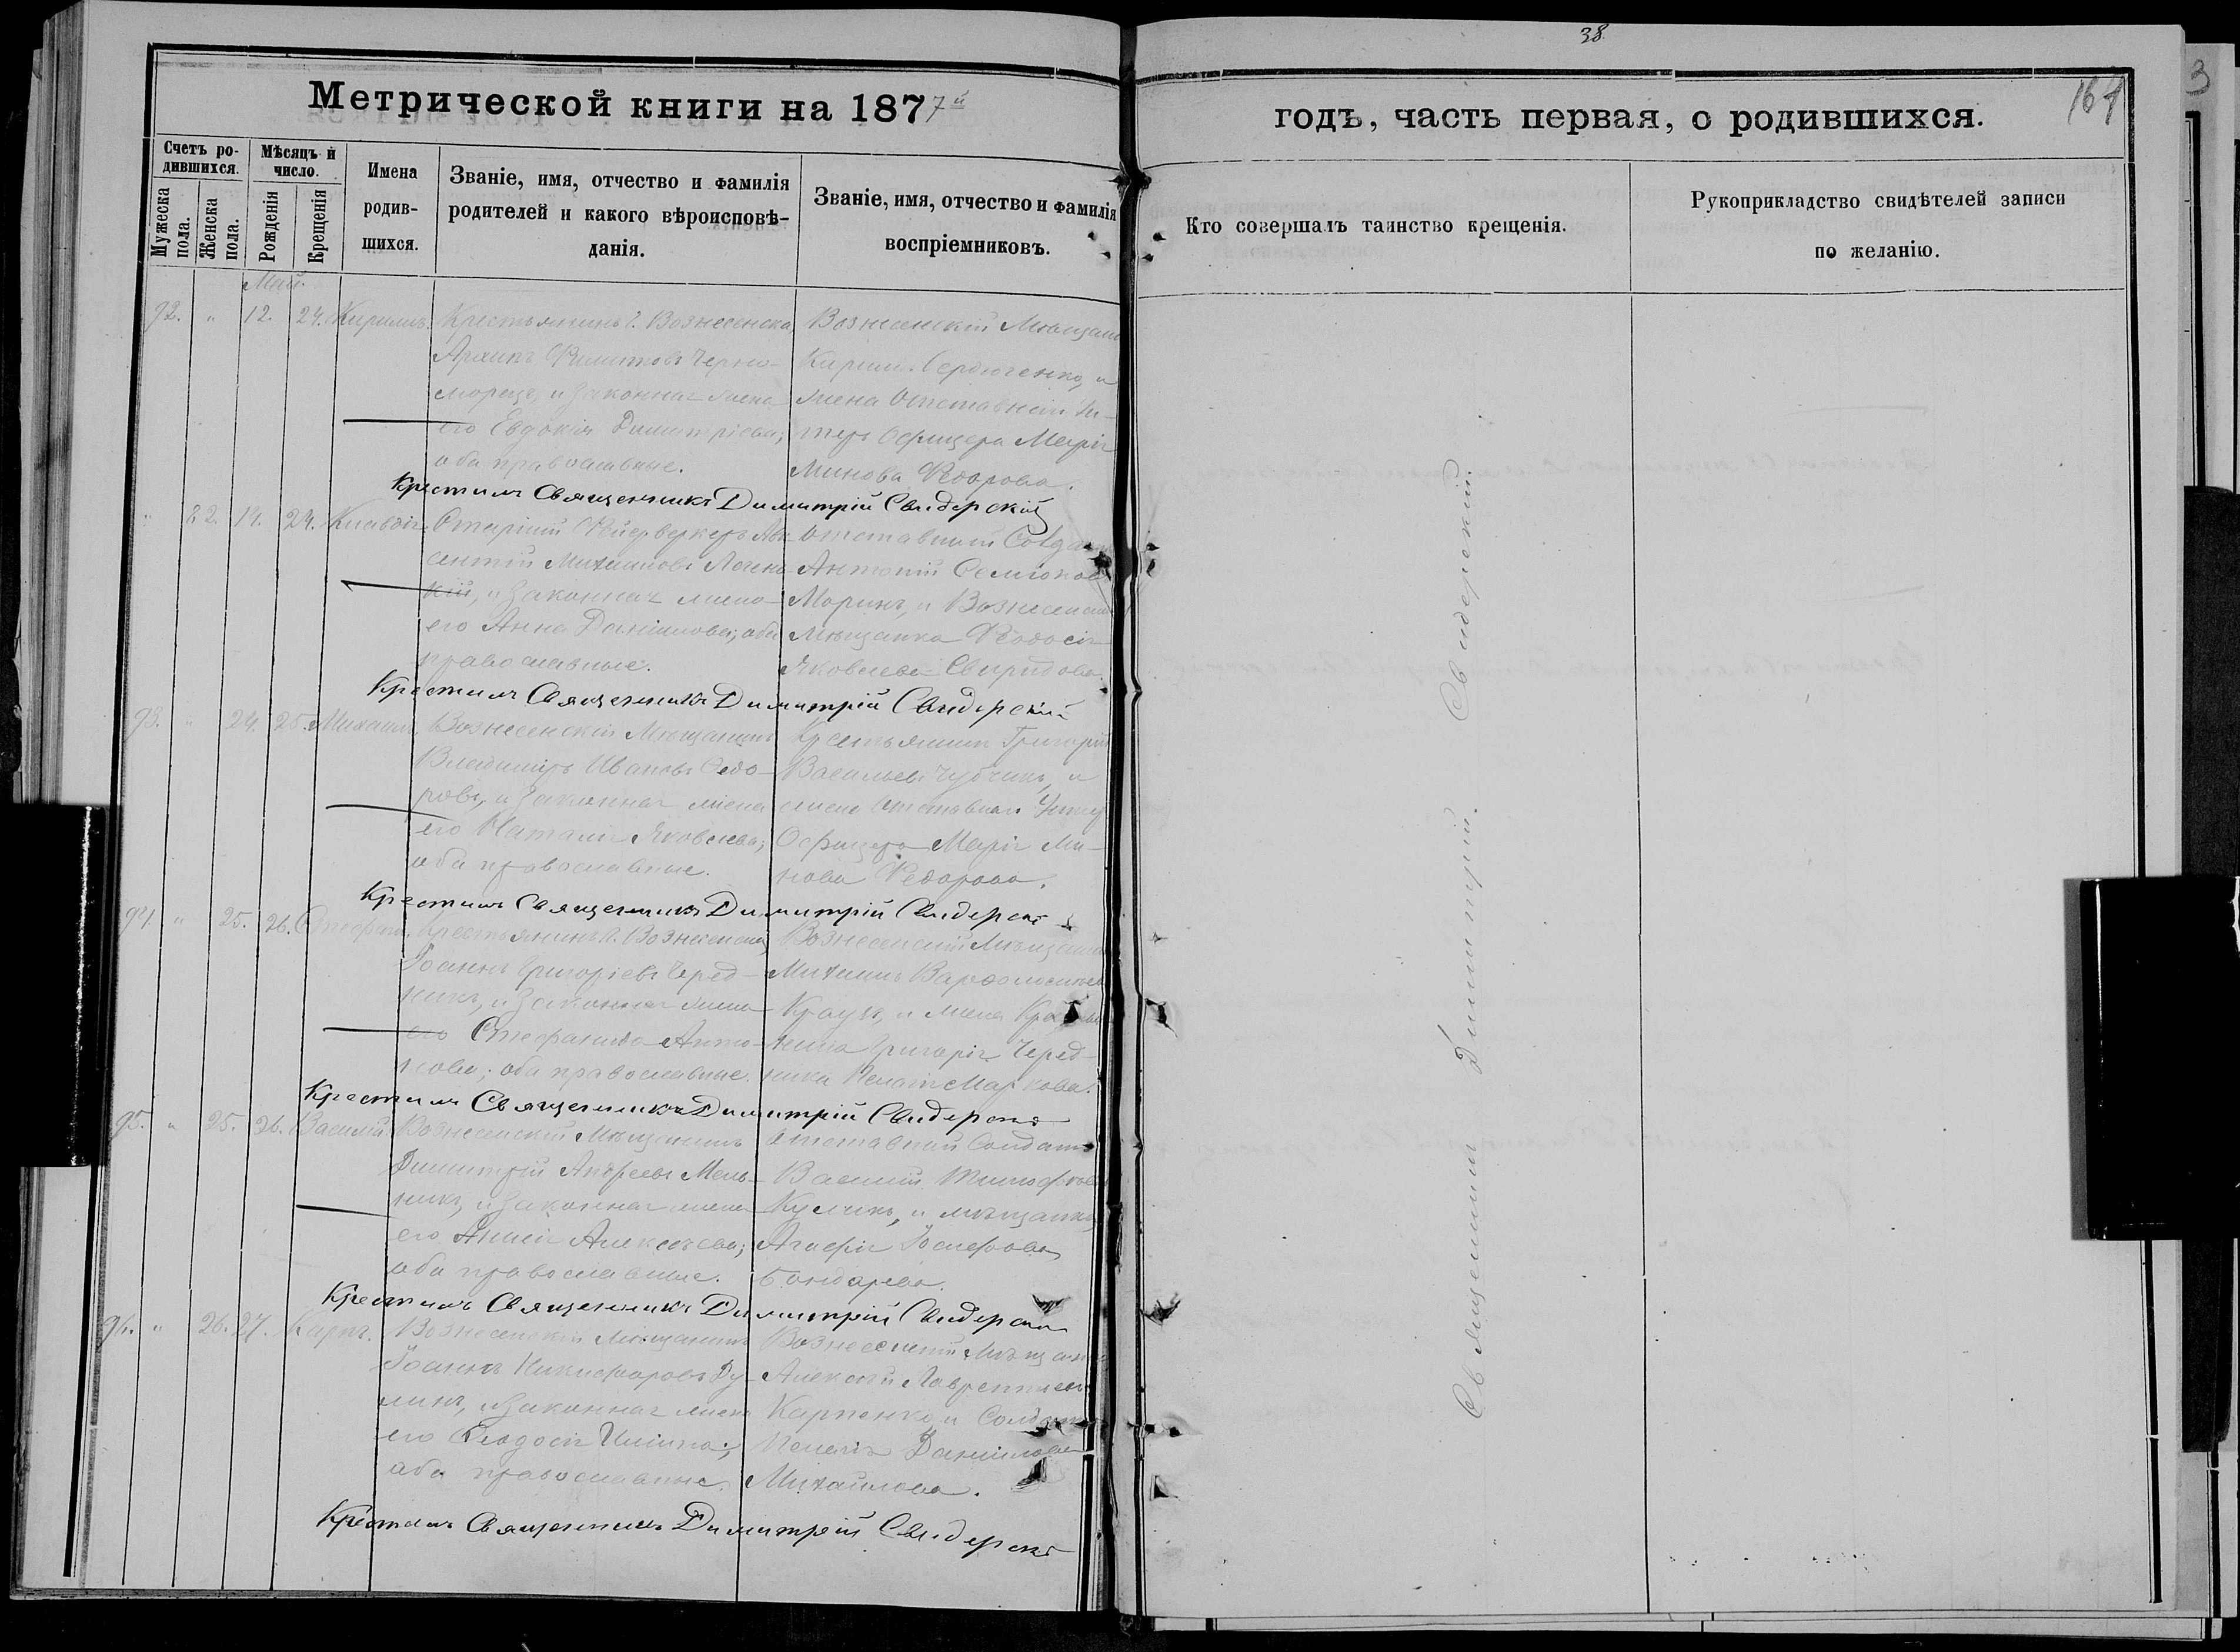 38
3
Метрической книги на 1877й
годъ, часть первая, о родившихся.
167
Счетъ ро-
дившихся.
Мужеска
пола.
Женска
пола.
Мѣсяцъ и
число.
Рожденія
Крещенія
Имена
родив-
шихся.
Званіе, имя, отчество и фамилія
родителей и какого вѣроисповѣ-
данія.
Званіе, имя, отчество и фамилія
воспріемниковъ.
Кто совершалъ таинство крещенія.
Рукоприкладство свидѣтелей записи
по желанію.
Май.
92. " 12. 24. Кириллъ.
Крестьянинъ г. Вознесенска
Архипъ Филиповъ Черно-
морецъ, и законная жена
его Евдокія Димитріева;
оба православные.
Вознесенскій Мѣщани
Кириллъ Сердюченко, и
жена Отставнаго Ун-
теръ Офицера Марія
Минова Федорова.
Крестилъ Священникъ Димитрій Свидерскій
" 82. 14. 24. Клавдія.
Старшій Фейерверкеръ
Михаиловъ
кій, и законная жена
его Анна Даніилова; оба
православные.
Отставной Солда
Антоній Семіонов
Моринъ, и Вознесенск
Мѣщанка Феодосія
Яковлева Свиридова.
Крестилъ Священникъ Димитрій Свидерскій
93. " 24. 25. Михаилъ.
Вознесенскій Мѣщанинъ
Владиміръ Ивановъ Седо-
ровъ, и законная жена
его Наталія Яковлева;
оба православные.
Крестьянинъ Григорій
Васильевъ Чубчикъ, и
жена Отставнаго Унтер
Офицера Марія Ми-
нова Федорова.
Крестилъ Священникъ Димитрій Свидерскі
94. " 25. 26. Стефанъ.
Крестьянинъ г. Вознесенска
Іоаннъ Григоріевъ Черед-
никъ, и законная жена
его Стефанида Анто-
нова; оба православные.
Вознесенскій Мѣщани
Михаилъ Варфоломѣев
Краузъ, и жена Крестья
нина Григорія Черед-
ника Пелагія Маркова.
Крестилъ Священникъ Димитрій Свидерскі
95. " 25. 26. Василій
Вознесенскій Мѣщанинъ
Димитрій Андреевъ Мель-
никъ, и законная жена
его Анисія Алексѣева;
оба православные.
Отставной Солдатъ
Василій Тимофѣев
Куликъ, и мѣщанка
Агафія Іосифова
Бондарева.
Крестилъ Священникъ Димитрій Свидерскі
96. " 26. 27. Карпъ.
Вознесенскій Мѣщанинъ
Іоаннъ Никифоровъ Ду-
линъ, и законная жена
его Феодосія Ильина;
оба православные.
Вознесенскій Мѣщани
Алексѣй Лаврентіевъ
Карпенко, и Солдатка
Даніилова
Михайлова.
Крестилъ Священникъ Димитрій Свидерскі
Священникъ Димитрій Свидерскій.